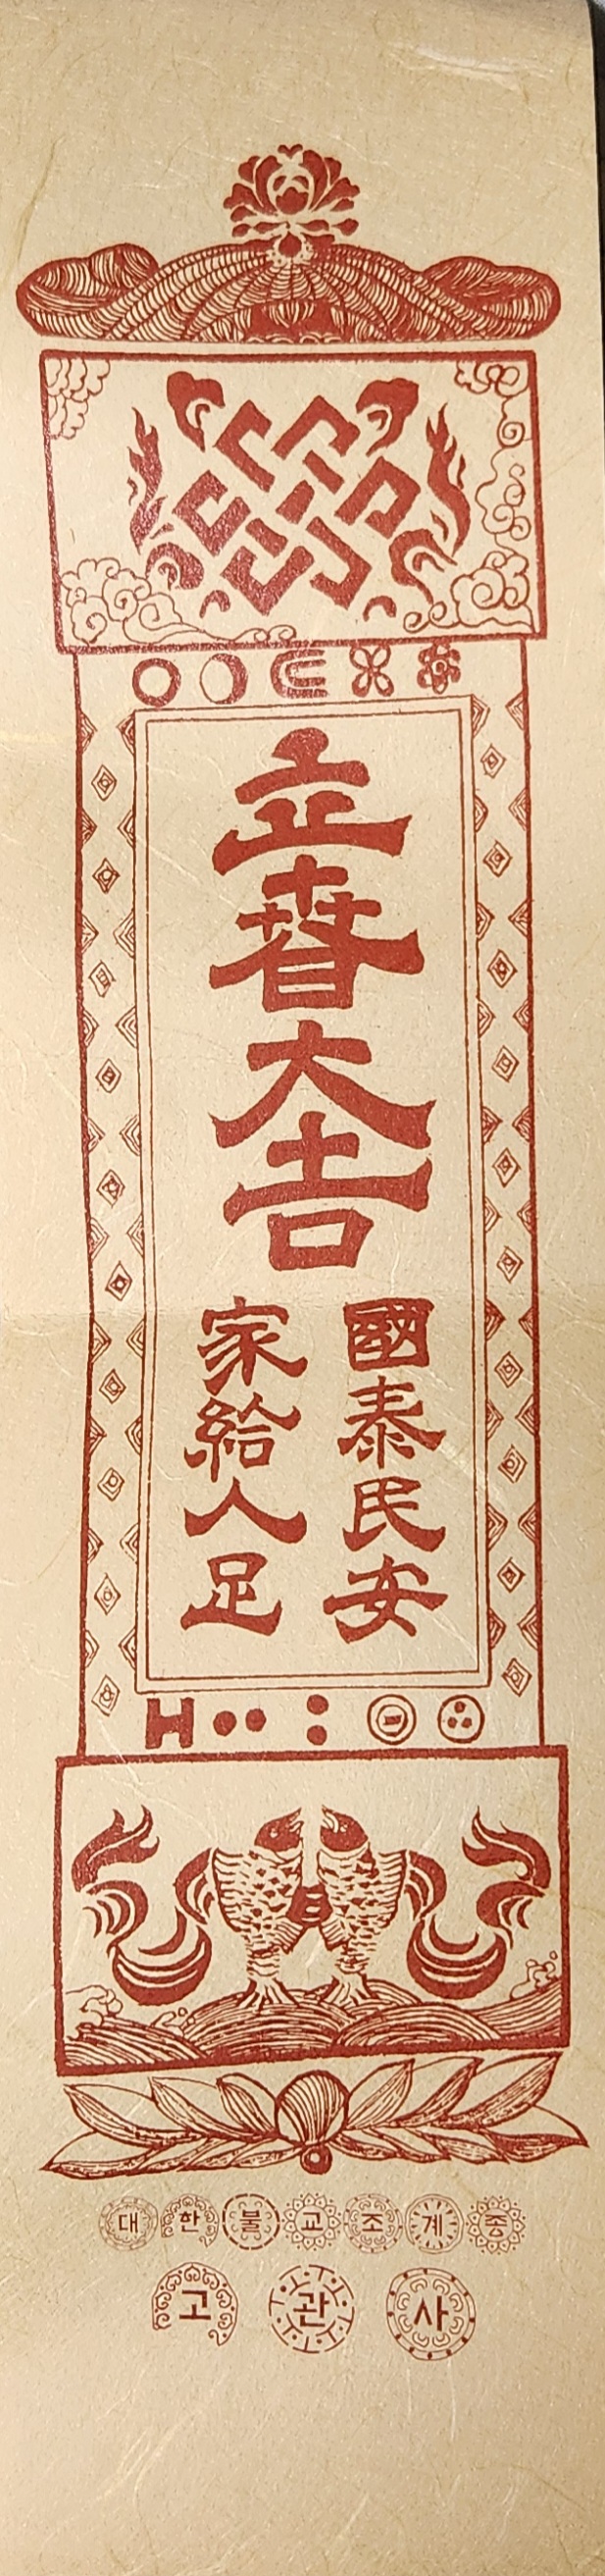 立春大吉
國泰民安
家給人足
대한불교조계종
고관사